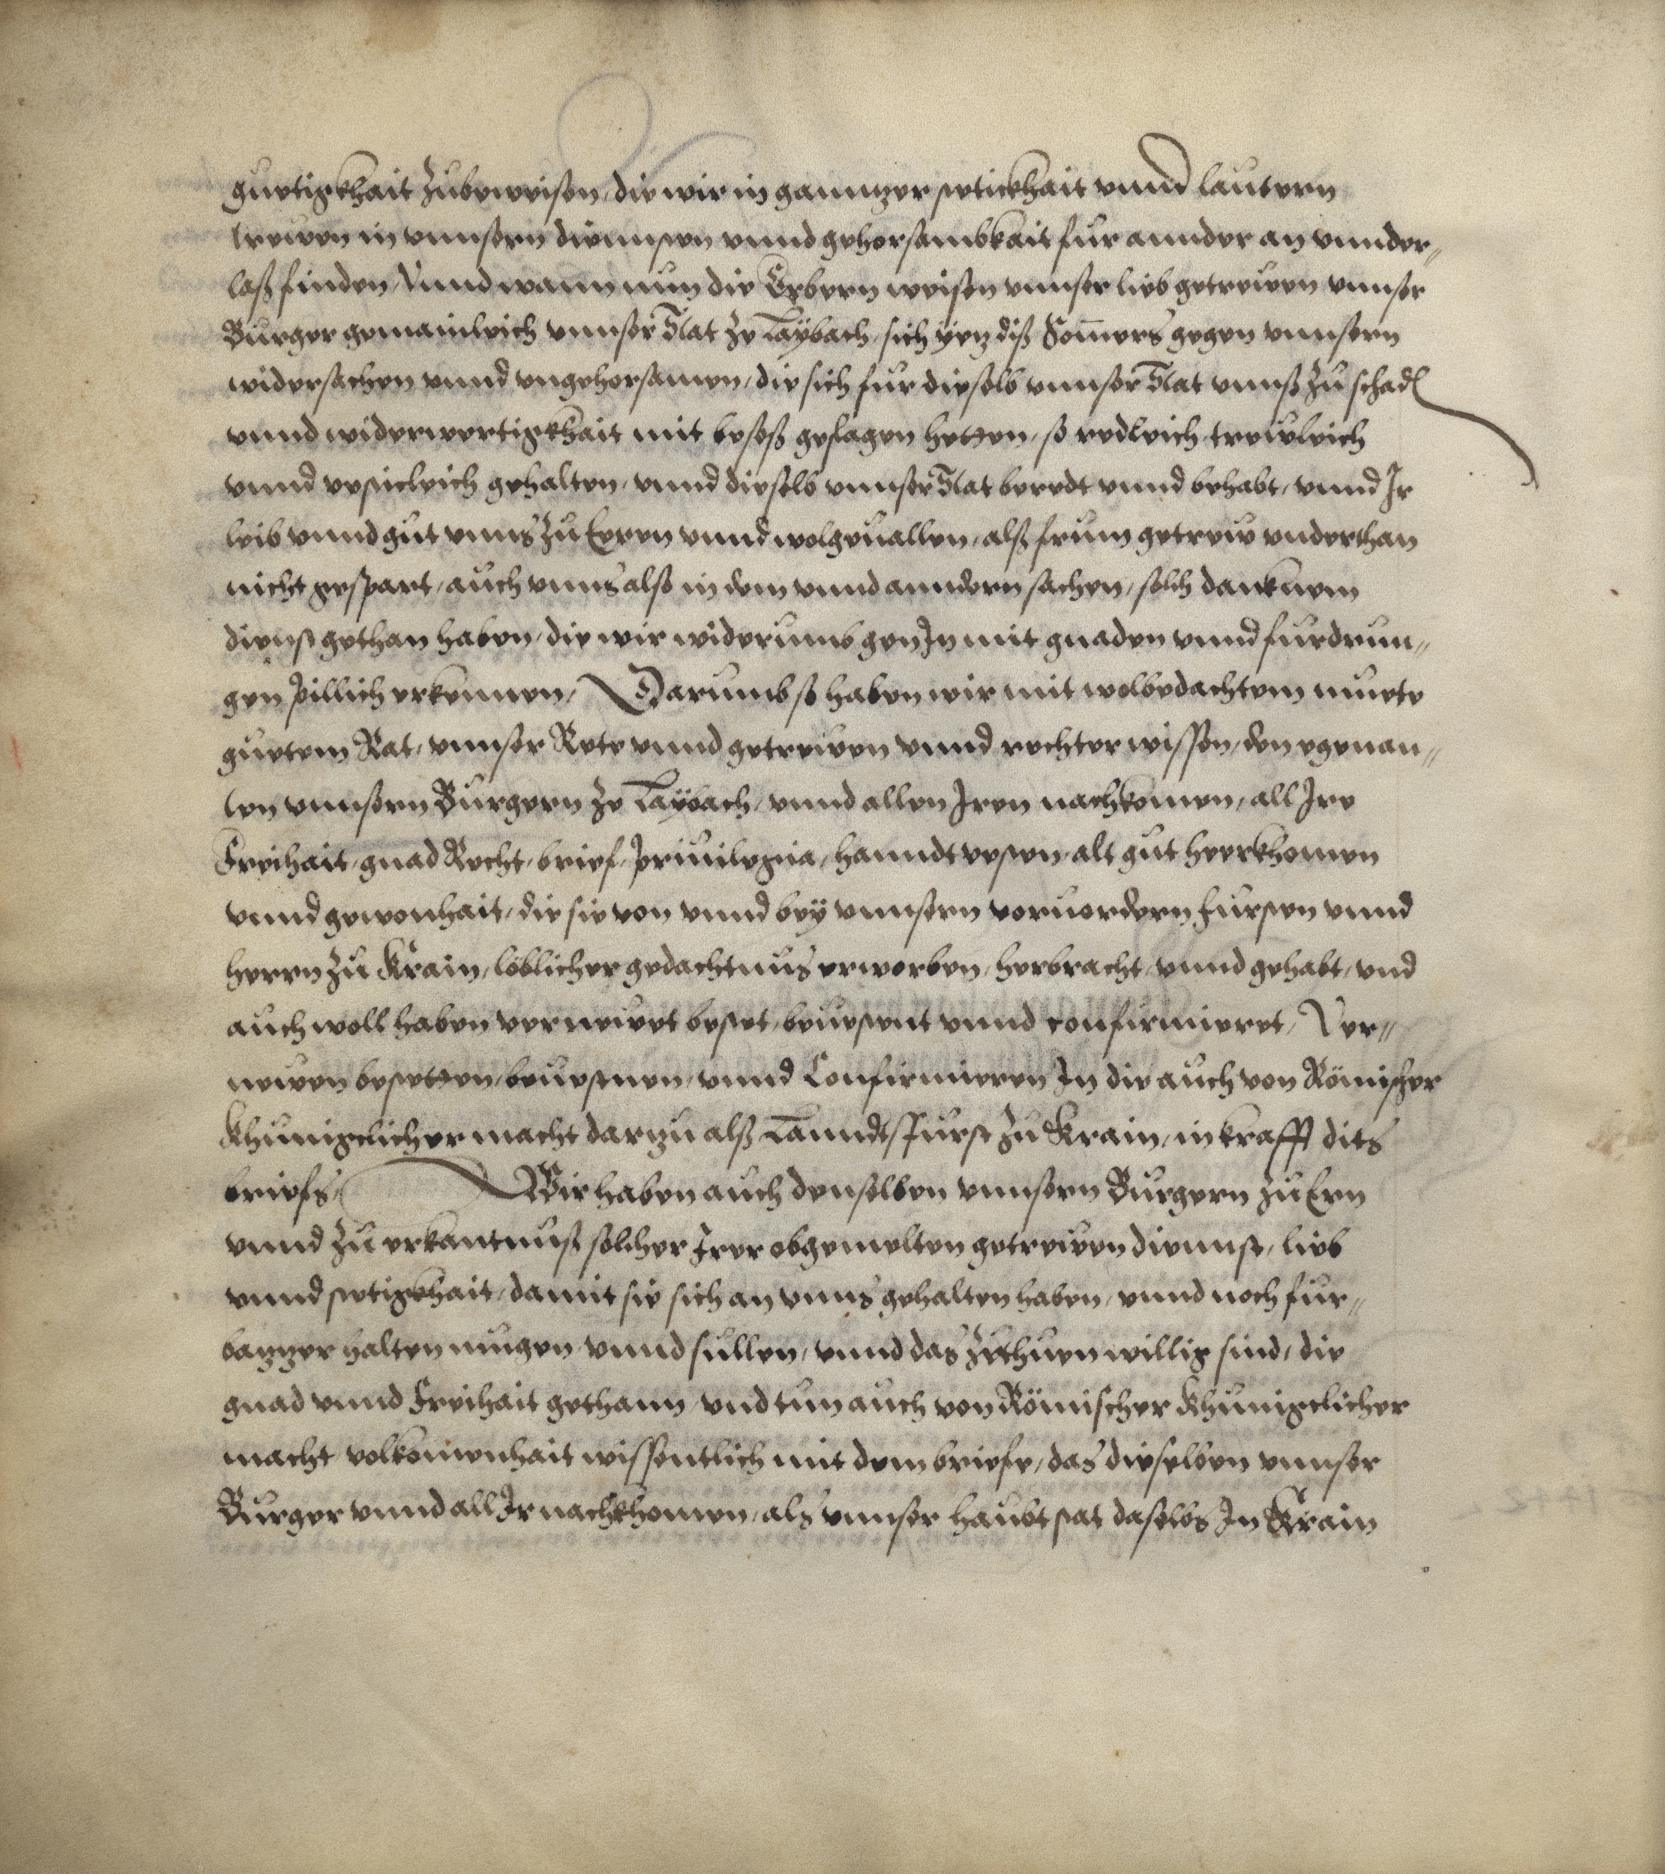 guetigkhait zubeweisen, die wir in ganntzer stetickhait vnnd lautern
trewen in vnnsern diennsten vnnd gehorsambkait fur annder an vnnder„
laß finden, Vnnd wann nun die Erbern weisen vnnser lieb getrewen vnnser
Burger gemainleich vnnser Stat ze Laybach, sich yetz diß Som̄ers gegen vnnsern
widersachen vnnd vngehorsamen, die sich fur dieselb vnnser Stat vnnß zu schadn
vnnd widerwertigkhait mit beseß geslagen hetten, so redleich trewleich
vnnd vestickleich gehalten, vnnd dieselb vnnser Stat beredt vnnd behabt, vnnd Jr
leib vnnd gut vnns zu Eeren vnnd wolgeuallen, alß frum getrew vnderthan
nicht gespart, auch vnns also in dem vnnd anndern sachen, solch danknem
dienst gethan haben, die wir widerumb gen Jn mit gnaden vnnd furdrun„
gen pillich erkennen, Darumb so haben wir mit wolbedachtem muete
guetem Rat, vnnser Rete vnnd getrewen vnnd rechter wissen, den egenan„
ten vnnsern Burgern ze Laybach, vnnd allen Jren nachkomen, all Jre
Freihait, gnad Recht, brief, Priuilegia, hanndtvesten, alt gut heerkhomen
vnnd gewonhait, die sie von vnnd bey vnnsern voruordern fursten vnnd
herrn zu Krain, löblicher gedachtnus erworben, herbracht, vnnd gehabt, vnd
auch woll haben vernewet bestet, beuestent vnnd confirmieret, Ver„
newen bestetten, beuestnen, vnnd Confirmieren Jn die auch von Römischer
Khunigclicher macht darzu alß Lanndtsfurst zu Krain, in krafft dits
briefs, Wir haben auch denselben vnnsern Burgern zu Ern
vnnd zu erkantnuß solcher Jrer obgemelten getrewen diennst, lieb
vnnd stetigkhait, damit sie sich an vnns gehalten haben, vnnd noch fur„
batzer halten mugen vnnd sullen, vnnd das zethuen willig sind, die
gnad vnnd Freihait gethann, vnd tun auch von Römischer Khunigclicher
macht volkomenhait wissentlich mit dem briefe, das dieselben vnnser
Burger vnnd all Jr nachkhomen, als vnnser haubtstat daselbs Jn Krain